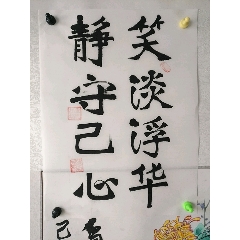 笑淡浮华
静守己心
己